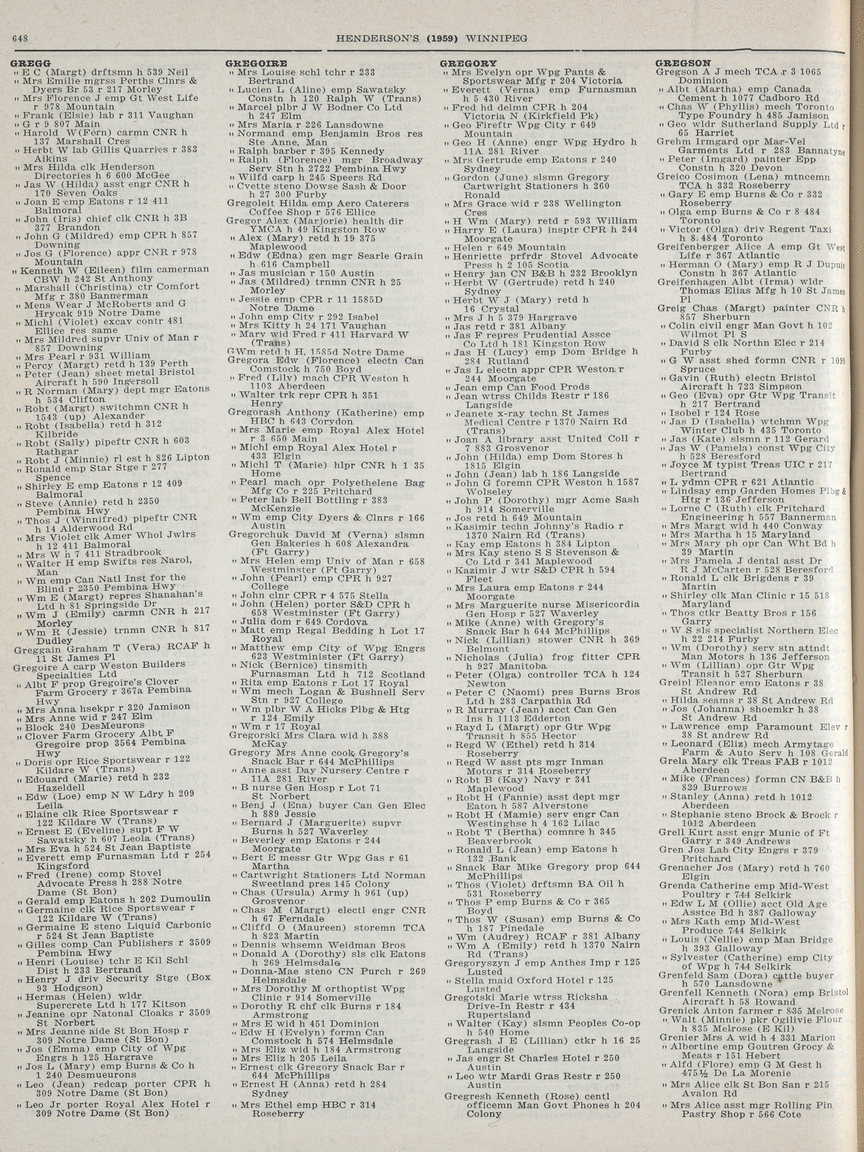 648
HENDERSON'S (1959) WINNIPEG
GREGG
" E C (Margt) drftsmn h 539 Neil
" Mrs Emilie mgrss Perths Clnrs &
Dyers Br 53 r 217 Morley
" Mrs Florence J emp Gt West Life
r 978 Mountain
" Frank (Elsie) lab r 311 Vaughan
" G r 9 807 Main
" Harold W (Fern) carmn CNR h
137 Marshal Cres
" Herbt W lab Gillis Quarries r 383
Aikins
" Mrs Hilda clk Henderson
Directories h 6 600 McGee
" Jas W (Hilda) asst engr CNR h
170 Seven Oaks
" Joan E emp Eatons r 12 411
Balmoral
" John (Iris) chief clk CNR h 3B
377 Brandon
" John G (Mildred) emp CPR h 857
Downing
" Jos G (Florence) appr CNR r 978
Mountain
" Kenneth W (Eileen) film camerman
CBW h 242 St Anthony
" Marshall (Christina) ctr Comfort
Mfg r 380 Bannerman
" Mens Wear J McRoberts and G
Hrycak 919 Notre Dame
" Michl (Violet) excav contr 481
Ellice res same
" Mrs Mildred supvr Univ of Man r
857 Downing
" Mrs Pearl r 931 William
" Percy (Margt) retd h 139 Perth
" Peter (Jean) sheet metal Bristol
Aircraft h 590 Ingersoll
" R Norman (Mary) dept mgr Eatons
h 534 Clifton
" Robt (Margt) switchmn CNR h
1543 (up) Alexander
" Robt (Isabella) retd h 312
Kilbride
" Robt (Sally) pipeftr CNR h 603
Rathgar
" Robt J (Minnie) rl est h 826 Lipton
" Ronald emp Star Stge r 277
Spence
" Shirley E emp Eatons r 12 409
Balmoral
" Steve (Annie) retd h 2350
Pembina Hwy
" Thos J (Winnifred) pipeftr CNR
h 14 Alderwood Rd
" Mrs Violet clk Amer Whol Jwlrs
h 12 411 Balmoral
" Mrs W h 7 411 Stradbrook
" Walter H emp Swifts res Narol,
Man
" Wm emp Can Natl Inst for the
Blind r 2350 Pembina Hwy
" Wm E (Margt) repres Shanahan's
Ltd h 81 Springside Dr
" Wm J (Emily) carmn CNR h 217
Morley
" Wm R (Jessie) trnmn CNR h 817
Dudley
Greggain Graham T (Vera) RCAF h
11 St James Pl
Gregoire A carp Westen Builders
Specialties Ltd
" Albt F prop Gregoire's Clover
Farm Grocery r 367a Pembina
Hwy
" Mrs Anna hsekpr r 320 Jamison
" Mrs Anne wid r 247 Elm
" Block 240 DesMeurons
" Clover Farm Grocery Albt F
Gregoire prop 3564 Pembina
Hwy
" Doris opr Rice Sportswear r 122
Kildare W (Trans)
" Edouard (Marie) retd h 232
Hazeldell
" Edw (Loe) emp N W Ldry h 209
Leila
" Elaine clk Rice Sportswear r
122 Kildare W (Trans)
" Ernest E (Eveline) supt F W
Sawatsky h 607 Leola (Trans)
" Mrs Eva h 524 St Jean Baptiste
" Everett emp Furnasman Ltd r 254
Kingsford
" Fred (Irene) comp Stovel
Advocate Press h 288 Notre
Dame (St Bon)
" Gerald emp Eatons h 202 Dumoulin
" Germaine clk Rice Sportswear r
122 Kildare W (Trans)
" Germaine E steno Liquid Carbonic
r 524 St Jean Baptiste
" Gilles comp Can Publishers r 3509
Pembina Hwy
" Henri (Louise) tchr E Kil Schl
Dist h 233 Bertrand
" Henry J driv Security Stge (Box
93 Hodgson)
" Hermas (Helen) wldr
Supercrete Ltd h 177 Kitson
" Jeanine opr Natonal Cloaks r 3509
St Norbert
" Mrs Jeanne aide St Bon Hosp r
309 Notre Dame (St Bon)
" Jos (Emma) emp City of Wpg
Engrs h 125 Hargrave
" Jos L (Mary) emp Burns & Co h
1 240 Desmueurons
" Leo (Jean) redcap porter CPR h
309 Notre Dame (St Bon)
" Leo Jr porter Royal Alex Hotel r
309 Notre Dame (St Bon)
GREGOIRE
" Mrs Louise schl tchr r 233
Bertrand
" Lucien L (Aline) emp Sawatsky
Constn h 120 Ralph W (Trans)
" Marcel plbr J W Bodner Co Ltd
h 247 Elm
" Mrs Maria r 226 Lansdowne
" Normand emp Benjamin Bros res
Ste Anne, Man
" Ralph barber r 395 Kennedy
" Ralph (Florence) mgr Broadway
Serv Stn h 2722 Pembina Hwy
" Wilfd carp h 245 Speers Rd
" Cvette steno Dowse Sash & Door
h 27 300 Furby
Gregoleit Hilda emp Aero Caterers
Coffee Shop r 576 Ellice
Gregor Alex (Marjorie) health dir
YMCA h 49 Kingston Row
" Alex (Mary) retd h 19 375
Maplewood
" Edw (Edna) gen mgr Searle Grain
h 616 Campbell
" Jas musician r 150 Austin
" Jas (Mildred) trnmn CNR h 25
Morley
" Jessie emp CPR r 11 1585D
Notre Dame
" John emp City r 292 Isabel
" Mrs Kitty h 24 171 Vaughan
" Mary wid Fred r 411 Harvard W
(Trans)
" GWm retd h H, 1585d Notre Dame
Gregora Edw (Florence) electn Can
Comstock h 750 Boyd
" Fred (Lily) mach CPR Weston h
1103 Aberdeen
" Walter trk repr CPR h 351
Henry
Gregorash Anthony (Katherine) emp
HBC h 643 Corydon
" Mrs Marie emp Royal Alex Hotel
r 3 650 Main
" Michl emp Royal Alex Hotel r
433 Elgin
" Michl T (Marie) hlpr CNR h 1 35
Home
" Pearl mach opr Polyethelene Bag
Mfg Co r 225 Pritchard
" Peter lab Bell Bottling r 383
McKenzie
" Wm emp City Dyers & Clnrs r 166
Austin
Gregorchuk David M (Verna) slsmn
Gen Bakeries h 608 Alexandra
(Ft Garry)
" Mrs Helen emp Univ of Man r 658
Westminster (Ft Garry)
" John (Pearl) emp CPR h 927
College
" John clnr CPR r 4 575 Stella
" John (Helen) porter S&D CPR h
658 Westminster (Ft Garry)
" Julia dom r 649 Cordova
" Matt emp Regal Bedding h Lot 17
Royal
" Matthew emp City of Wpg Engrs
623 Westminister (Ft Garry)
" Nick (Bernice) tinsmith
Furnasman Ltd h 712 Scotland
" Rita emp Eatons r Lot 17 Royal
" Wm mech Logan & Bushnell Serv
Stn r 927 College
" Wm plbr W A Hicks Plbg & Htg
r 124 Emily
" Wm r 17 Royal
Gregorski Mrs Clara wid h 388
McKay
Gregory Mrs Anne cook Gregory's
Snack Bar r 644 McPhillips
" Anne asst Day Nursery Centre r
11A 281 River
" B nurse Gen Hosp r Lot 71
St Norbert
" Benj J (Ena) buyer Can Gen Elec
h 889 Jessie
" Bernard J (Marguerite) supvr
Burns h 527 Waverley
" Beverley emp Eatons r 244
Moorgate
" Bert E messr Gtr Wpg Gas r 61
Martha
" Cartwright Stationers Ltd Norman
Sweetland pres 145 Colony
" Chas (Ursula) Army h 961 (up)
Grosvenor
" Chas M (Margt) electl engr CNR
h 67 Ferndale
" Cliffd O (Maureen) storemn TCA
h 823 Martin
" Dennis whsemn Weidman Bros
" Donald A (Dorothy) sls clk Eatons
h 269 Helmsdale
" Donna-Mae steno CN Purch r 269
Helmsdale
" Mrs Dorothy M orthoptist Wpg
Clinic r 914 Somerville
" Dorothy R chf clk Burns r 184
Armstrong
" Mrs E wid h 451 Dominion
" Edw H (Evelyn) formn Can
Comstock h 574 Helmsdale
" Mrs Eliz wid h 184 Armstrong
" Mrs Eliz h 205 Leila
" Ernest clk Gregory Snack Bar r
644 McPhillips
" Ernest H (Anna) retd h 284
Sydney
" Mrs Ethel emp HBC r 314
Roseberry
GREGORY
" Mrs Evelyn opr Wpg Pants &
Sportswear Mfg r 204 Victoria
" Everett (Verna) emp Furnasman
h 5 430 River
" Fred hd delmn CPR h 204
Victoria N (Kirkfield Pk)
" Geo Fireftr Wpg City r 649
Mountain
" Geo H (Anne) engr Wpg Hydro h
11A 281 River
" Mrs Gertrude emp Eatons r 240
Sydney
" Gordon (June) slsmn Gregory
Cartwright Stationers h 260
Ronald
" Mrs Grace wid r 238 Wellington
Cres
" H Wm (Mary) retd r 593 William
" Harry E (Laura) insptr CPR h 244
Moorgate
" Helen r 649 Mountain
" Henriette prfrdr Stovel Advocate
Press h 2 105 Scotia
" Henry jan CN B&B h 232 Brooklyn
" Herbt W (Gertrude) retd h 240
Sydney
" Herbt W J (Mary) retd h
16 Crystal
" Mrs J h 5 379 Hargrave
" Jas retd r 281 Albany
" Jas F repres Prudential Assce
Co Ltd h 181 Kingston Row
" Jas H (Lucy) emp Dom Bridge h
284 Rutland
" Jas L electn appr CPR Weston r
244 Moorgate
" Jean emp Can Food Prods
" Jean wtrss Childs Restr r 186
Langside
" Jeanete x-ray techn St James
Medical Centre r 1370 Nairn Rd
(Trans)
" Joan A library asst United Coll r
7 883 Grosvenor
" John (Hilda) emp Dom Stores h
1815 Elgin
" John (Jean) lab h 186 Langside
" John G foremn CPR Weston h 1587
Wolseley
" John P (Dorothy) mgr Acme Sash
h 914 Somerville
" Jos retd h 649 Mountain
" Kasimir techn Johnny's Radio r
1370 Nairn Rd (Trans)
" Kay emp Eatons h 384 Lipton
" Mrs Kay steno S S Stevenson &
Co Ltd r 341 Maplewood
" Kazimir J wtr S&D CPR h 594
Fleet
" Mrs Laura emp Eatons r 244
Moorgate
" Mrs Marguerite nurse Misericordia
Gen Hosp r 527 Waverley
" Mike (Anne) with Gregory's
Snack Bar h 644 McPhillips
" Nick (Lillian) stower CNR h 369
Belmont
" Nicholas (Julia) frog fitter CPR
h 927 Manitoba
" Peter (Olga) controller TCA h 124
Newton
" Peter C (Naomi) pres Burns Bros
Ltd h 283 Carpathia Rd
" R Murray (Jean) acct Can Gen
Ins h 1113 Edderton
" Rayd L (Margt) opr Gtr Wpg
Transit h 855 Hector
" Regd W (Ethel) retd h 314
Roseberry
" Regd W asst pts mgr Inman
Motors r 314 Roseberry
" Robt B (Kay) Navy r 341
Maplewood
" Robt H (Fannie) asst dept mgr
Eaton h 587 Alverstone
" Robt H (Mamie) serv engr Can
Westinghse h 4 162 Lilac
" Robt T (Bertha) comnre h 345
Beaverbrook
" Ronald L (Jean) emp Eatons h
132 Bank
" Snack Bar Mike Gregory prop 644
McPhillips
" Thos (Violet) drftsmn BA Oil h
531 Roseberry
" Thos P emp Burns & Co r 365
Boyd
" Thos W (Susan) emp Burns & Co
h 187 Pinedale
" Wm (Audrey) RCAF r 381 Albany
" Wm A (Emily) retd h 1370 Nairn
Rd (Trans)
Gregoryszyn J emp Anthes Imp r 125
Lusted
" Stella maid Oxford Hotel r 125
Lusted
Gregotski Marie wtrss Ricksha
Drive-In Restr r 434
Rupertsland
" Walter (Kay) slsmn Peoples Co-op
h 540 Home
Gregrash J E (Lillian) ctkr h 16 25
Langside
" Jas engr St Charles Hotel r 250
Austin
" Leo wtr Mardi Gras Restr r 250
Austin
Gregresh Kenneth (Rose) centl
officemn Man Govt Phones h 204
Colony
GREGSON
Gregson A J mech TCA r 3 1065
Dominion
" Albt (Martha) emp Canada
Cement h 1077 Cadboro Rd
" Chas W (Phyllis) mech Toronto
Type Foundry h 485 Jamison
" Geo wldr Sutherland Supply Ltd r
65 Harriet
Grehm Irmgard opr Mar-Vel
Garments Ltd r 283 Bannatyne
" Peter (Imgard) painter Epp
Constn h 320 Devon
Greico Cosimon (Lena) mtncemn
TCA h 332 Roseberry
" Gary E emp Burns & Co r 332
Roseberry
" Olga emp Burns & Co r 8 484
Toronto
" Victor (Olga) driv Regent Taxi
h 8 484 Toronto
Greifenberger Alice A emp Gt West
Life r 367 Atlantic
" Herman O (Mary) emp R J Dupuis
Constn h 367 Atlantic
Greifenhagen Albt (Irma) wldr
Thomas Elias Mfg h 10 St James
Pl
Greig Chas (Margt) painter CNR h
857 Sherburn
" Colin civil engr Man Govt h 102
Wilmot Pl S
" David S clk Northn Elec r 214
Furby
" G W asst shed formn CNR r 1055
Spruce
" Gavin (Ruth) electn Bristol
Aircraft h 723 Simpson
" Geo (Eva) opr Gtr Wpg Transit
h 217 Bertrand
" Isobel r 124 Rose
" Jas D (Isabella) wtchmn Wpg
Winter Club h 435 Toronto
" Jas (Kate) slsmn r 112 Gerard
" Jas W (Pamela) const Wpg City
h 528 Beresford
" Joyce M typist Treas UIC r 217
Bertrand
" L ydmn CPR r 621 Atlantic
" Lindsay emp Garden Homes Plbg &
Htg r 136 Jefferson
" Lorne C (Ruth) clk Pritchard
Engineering h 557 Bannerman
" Mrs Margt wid h 440 Conway
" Mrs Martha h 15 Maryland
" Mrs Mary ph opr Can Wht Bd h
39 Martin
" Mrs Pamela J dental asst Dr
R J McCarten r 528 Beresford
" Ronald L clk Brigdens r 39
Martin
" Shirley clk Man Clinic r 15 518
Maryland
" Thos ctkr Beatty Bros r 156
Garry
" W S sls specialist Northern Elec
h 22 214 Furby
" Wm (Dorothy) serv stn attndt
Man Motors h 136 Jefferson
" Wm (Lillian) opr Gtr Wpg
Transit h 527 Sherburn
Greinl Eleanor emp Eatons r 38
St Andrew Rd
" Hilda seams r 38 St Andrew Rd
" Jos (Johanna) shoemkr h 38
St Andrew Rd
" Lawrence emp Paramount Elev r
38 St andrew Rd
" Leonard (Eliz) mech Armytage
Farm & Auto Serv h 108 Gerald
Grela Mary clk Treas FAB r 1012
Aberdeen
" Mike (Frances) formn CN B&B h
829 Burrows
" Stanley (Anna) retd h 1012
Aberdeen
" Stephanie steno Brock & Brock r
1012 Aberdeen
Grell Kurt asst engr Munic of Ft
Garry r 349 Andrews
Gren Jos Lab City Engrs r 379
Pritchard
Grenacher Jos (Mary) retd h 760
Elgin
Grenda Catherine emp Mid-West
Poultry r 744 Selkirk
" Edw L M (Ollie) acct Old Age
Asstce Bd h 387 Galloway
" Mrs Kath emp Mid-West
Produce 744 Selkirk
" Louis (Nellie) emp Man Bridge
h 393 Galloway
" Sylvester (Catherine) emp City
of Wpg h 744 Selkirk
Grenfeld Sam (Dora) cattle buyer
h 570 Lansdowne
Grenfell Kenneth (Nora) emp Bristol
Aircraft h 58 Rowand
Grenick Anton farmer r 835 Melrose
" Walt (Minnie) pkr Ogilivie Flour
h 835 Melrose (E Kil)
Grenier Mrs A wid h 4 331 Marion
" Albertine emp Goutren Grocy &
Meats r 151 Hebert
" Alfd (Flore) emp G M Gest h
475½ De La Morenie
" Mrs Alice clk St Bon San r 215
Avalon Rd
" Mrs Alice asst mgr Rolling Pin
Pastry Shop r 566 Cote